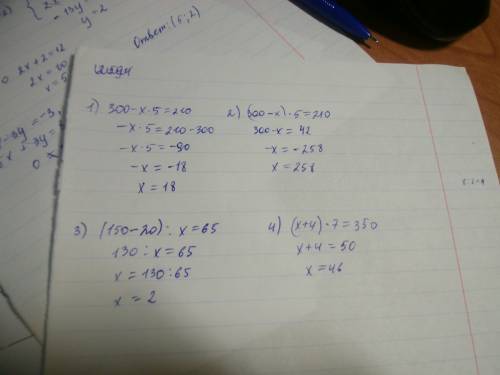 2x
-13y
y=2
2x+2=12
2x=10
x=5
Ответ: (5; 2)
1) 300-x·5=210
-x·5=210-300
-x·5=-90
-x=-18
x=18
2) (300-x)·5=210
300-x=42
-x=-258
x=258
3) (150-20):x=65
130:x=65
x=130:65
x=2
4) (x+4)·7=350
x+4=50
x=46